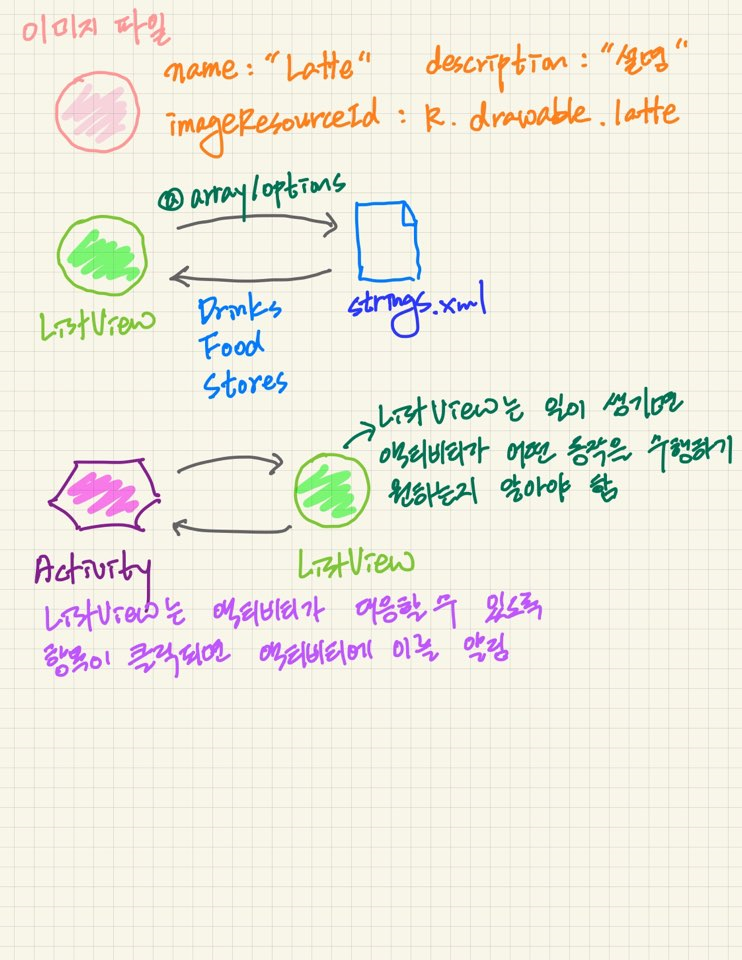 이미지 파일
name : "Latte" description : "설명"
imageResourceId : R.drawable.latte
@array/options
ListView
strings.xml
Drinks
Food
Stores
ListView는 일이 생기면
액티비티가 어떤 동작을 수행하기
원하는지 알아야 함
Activity
ListView
ListView는 액티비티가 대응할 수 있도록
항목이 클릭되면 액티비티에 이를 알림